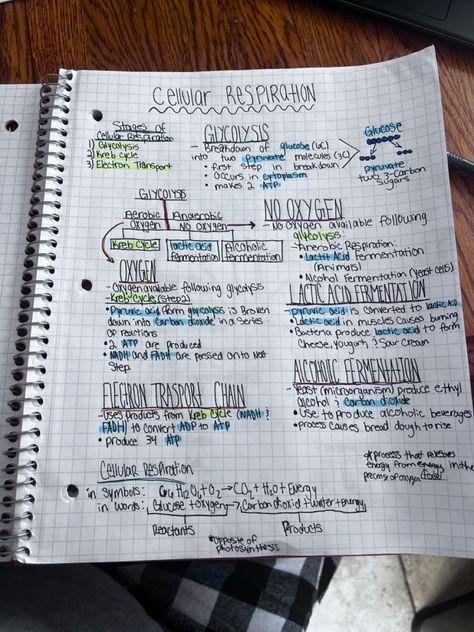 Cellular RESPIRATION
Stages of
Cellular Respiration
1) Glycolysis
2) Kreb cycle
3) Electron Transport
GLYCOLYSIS
- Breakdown of glucose (6C)
into two pyruvate molecules (3C)
• first step in breakdown
• occurs in cytoplasm
• makes 2 ATP
Glucose
pyruvate
two 3-Carbon
sugars
GLYCOLYSIS
Aerobic
oxygen
Anaerobic
NO OXYGEN
Kreb Cycle
lactic acid
fermentation
Alcoholic
fermentation
NO OXYGEN
- No oxygen available following
glycolysis:
- Anaerobic Respiration:
• Lactic Acid fermentation
(Animals)
• Alcohol Fermentation (yeast cells)
OXYGEN
- oxygen available following glycolysis
- Kreb cycle (step 2)
• Pyruvic acid form glycolysis is Broken
down into Carbon dioxide in a Series
of reactions
• 2 ATP are produced
• NADH and FADH are passed on to Next
step
LACTIC ACID FERMENTATION
- pyruvic acid is converted to lactic acid
• lactic acid in muscles causes burning
• Bacteria produce lactic acid to form
Cheese, yougart, & sour cream
ELECTRON TRASPORT CHAIN
- uses products from Kreb Cycle (NADH &
FADH) to convert ADP to ATP
• produce 34 ATP
ALCOHOLIC FERMENTATION
- yeast (microorganism) produce ethyl
alcohol & carbon dioxide
• Use to produce alcoholic beverages
• process causes bread dough to rise
Cellular Respiration
in symbols: C6 H12 O6 + O2 → CO2 + H2O + Energy
in words: Glucose + oxygen → Carbon dioxid + water + energy
Reactants
Products
*opposite of
photosynthesis
*process that releases
energy from energy in the
precense of oxygen food